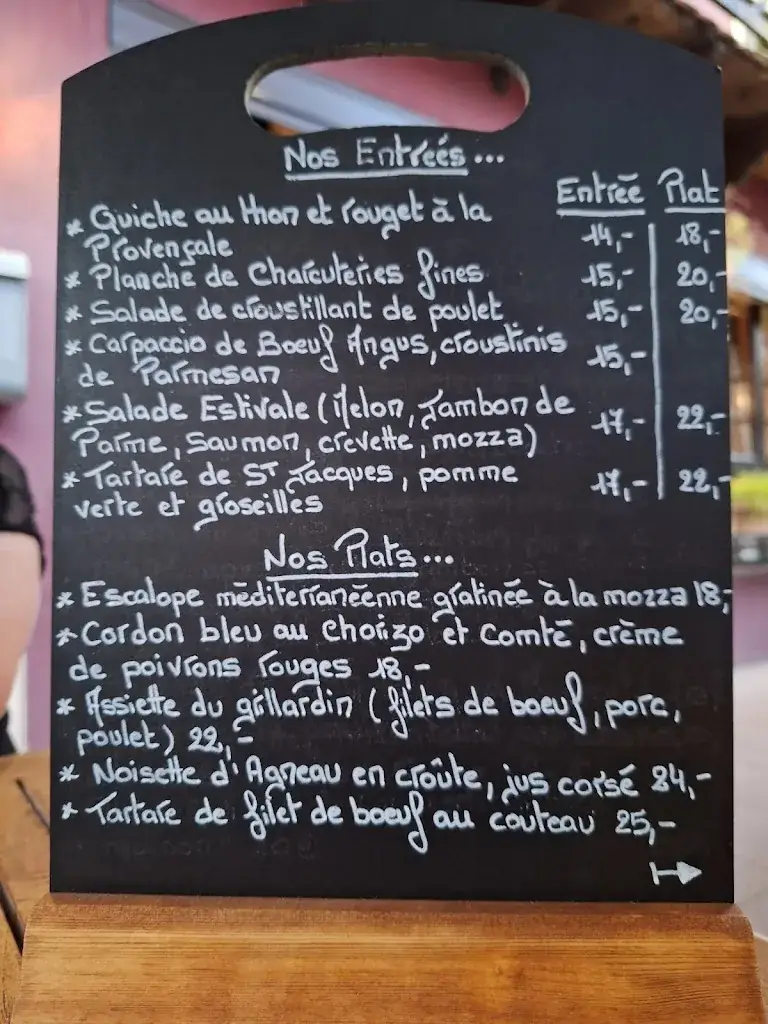 Nos Entrées...
Entrée Plat
* Quiche au thon et rouget à la
Provençale 14,- 18,-
* Planche de Charcuteries fines 15,- 20,-
* Salade de croustillant de poulet 15,- 20,-
* Carpaccio de Boeuf Angus, croustinis
de Parmesan 15,-
* Salade Estivale (Melon, Jambon de
Parme, saumon, crevette, mozza) 17,- 22,-
* Tartare de ST Jacques, pomme
verte et groseilles 17,- 22,-
Nos Plats...
* Escalope méditerranéenne gratinée à la mozza 18,-
* Cordon bleu au chorizo et Comté, crème
de poivrons rouges 18,-
* Assiette du grillardin (filets de boeuf, porc,
poulet) 22,-
* Noisette d'Agneau en croûte, jus corsé 24,-
* Tartare de filet de boeuf au couteau 25,-